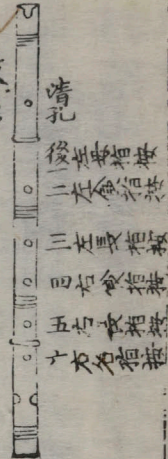 清孔
後一左母指按
二左食指按
三左長指按
四右食指按
五右長指按
右名指按